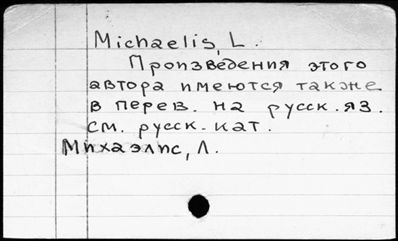 Michaelis, L.
Произведения этого
автора имеются также
в перев. на русск. яз.
см. русск. кат.
Михаэлис, Л.